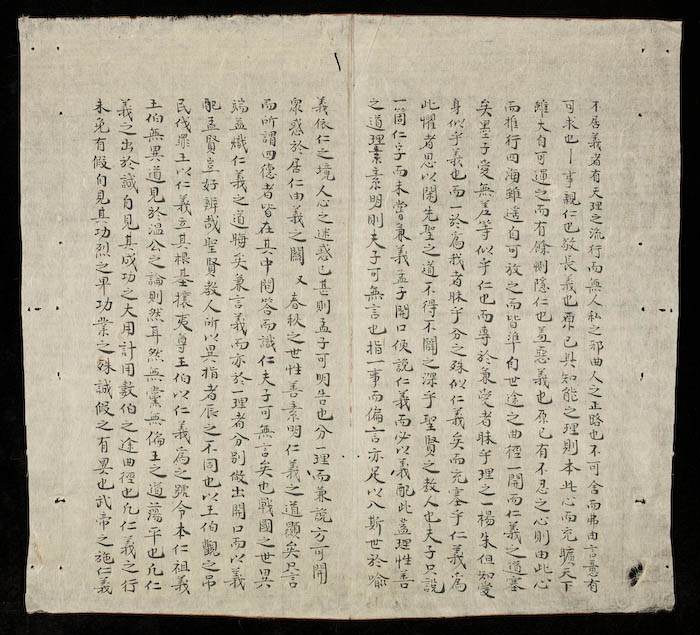 不居義者有天理之流行而無人私之邪曲人之正路也不可舍而弗由言意有
可求也一事親仁也敬長義也原已具知能之理則本此心而充曠天下
雖大自可運之而有餘惻隱仁也羞惡義也原已有不忍之心則由此心
而推行四海雖遥自可放之而皆準自世途之曲徑一開而仁義之道塞
矣墨子愛無差等似乎仁也而專於兼愛者昧乎理之一楊朱但知愛
身似乎義也而一於為我者昧乎分之殊似仁義矣而充塞乎仁義為
此懼者思以閑先聖之道不得不闢之深乎聖賢之教人也夫子只說
一箇仁字而未嘗兼義孟子開口便說仁義而必以義配此蓋理性善
之道理素明則夫子可無言也指一事而偏言亦足以入斯世於喻
義依仁之境人心之迷惑已甚則孟子可明告也分一理而兼說方可開
衆惑於居仁由義之闗 又春秋之世性善素明仁義之道顯矣只言
而所謂四德者皆在其中問答而識仁夫子可無言矣也戰國之世異
端益熾仁義之道晦矣兼言義而亦於一理者分別做出開口而以義
配孟賢豈好辨哉聖賢教人所以異指者辰之不同也以王伯觀之吊
民伐罪王以仁義立其根基攘夷尊王伯以仁義為之號令本仁祖義
王伯無異道見於温公之論則然耳然無黨無偏王之道蕩平也凡仁
義之出於誠自見其成功之大用計用數伯之途曲徑也凡仁義之行
未免有假自見其功烈之卑功業之殊誠假之有異也武帝之施仁義